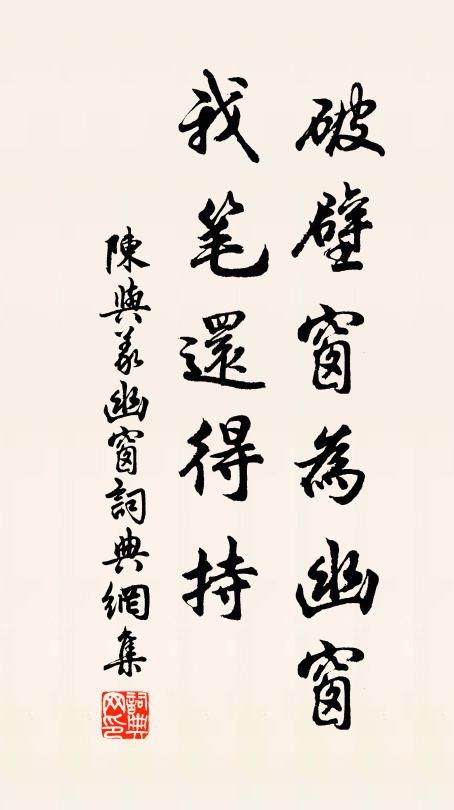 破壁窗為幽窗
我笔還得持
陳與義幽窗詞典網集
詞典网印